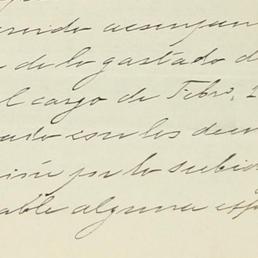 de lo gastado d
l cargo de Febro, 2
ado con los de
por lo subid
able alguna esp